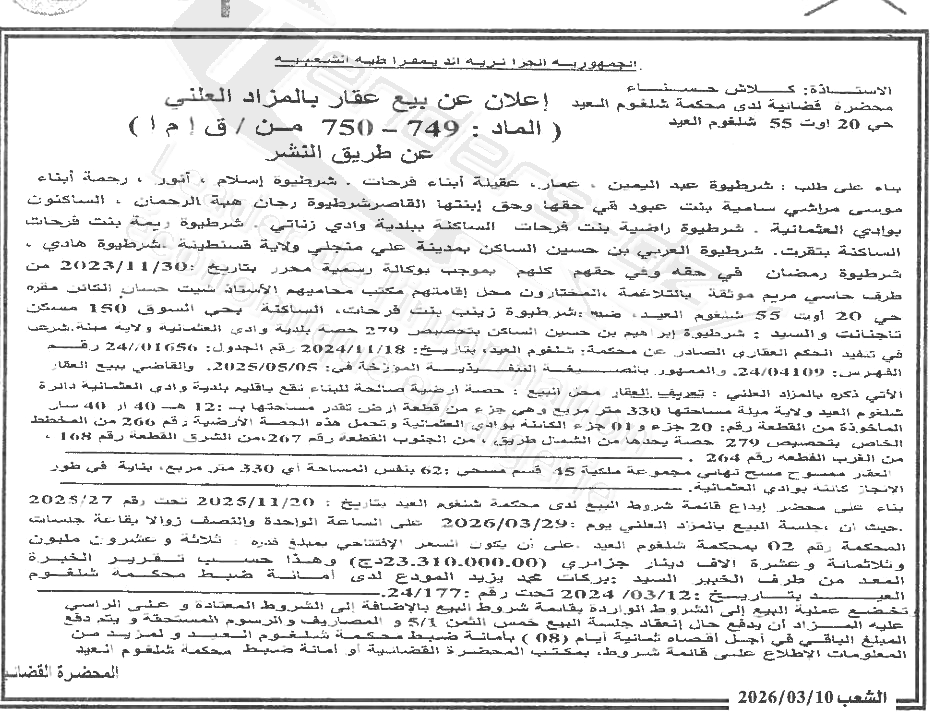 الجمهورية الجزائرية الديمقراطية الشعبية
الاستاذة: كلاش حسناء
محضرة قضائية لدى محكمة شلغوم العيد
حي 20 اوت 55 شلغوم العيد
إعلان عن بيع عقار بالمزاد العلني
( الماد : 749 - 750 من / ق إ م ا )
عن طريق النشر
بناء على طلب : شرطيوة عبد اليمين ، عمار، عقيلة أبناء فرحات . شرطيوة إسلام ، أنور ، رحمة أبناء
موسى مراشي سامية بنت عبود في حقها وحق إبنتها القاصرشرطيوة رجان هبة الرحمان ، الساكنون
بوادي العثمانية . شرطيوة راضية بنت فرحات الساكنة ببلدية وادي زناتي . شرطيوة ريمة بنت فرحات
الساكنة بتقرت. شرطيوة العربي بن حسين الساكن بمدينة علي منجلي ولاية قسنطينة .شرطيوة هادي ،
شرطيوة رمضان في حقه وفي حقهم كلهم بموجب بوكالة رسمية محرر بتاريخ :2023/11/30 من
طرف حاسي مريم موثقة بالتلاغمة ،المختارون محل إقامتهم مكتب محاميهم الأستاذ شيت حسان الكائن مقره
حي 20 أوت 55 شلغوم العيد، ضد :شرطيوة زينب بنت فرحات، الساكنة بحي السوق 150 مسكن
تاجنانت والسيد : شرطيوة إبراهيم بن حسين الساكن بتحصيص 279 حصة بلدية وادي العثمانية ولاية ميلة.شرعت
في تنفيد الحكم العقاري الصادر عن محكمة: شلغوم العيد، بتاريخ: 2024/11/18 رقم الجدول: 24/01656، رقم
الفهرس: 24/04109، والممهور بالصيغة التنفيذية المؤرخة في: 2025/05/05. والقاضي ببيع العقار
الآتي ذكره بالمزاد العلني : تعريف العقار محل البيع : حصة ارضية صالحة للبناء تقع باقليم بلدية وادي العثمانية دائرة
شلغوم العيد ولاية ميلة مساحتها 330 متر مربع وهي جزء من قطعة ارض تقدر مساحتها بـ :12 هـ 40 ار 40 سار
الماخوذة من القطعة رقم: 20 جزء و01 جزء الكائنة بوادي العثمانية وتحمل هذه الحصة الأرضية رقم 266 من المخطط
الخاص بتحصيص 279 حصة يحدها من الشمال طريق ، من الجنوب القطعة رقم 267،من الشرق القطعة رقم 168 ،
من الغرب القطعة رقم 264 .
العقار ممسوح مسح نهائي مجموعة ملكية 45 قسم مسحي :62 بنفس المساحة أي 330 متر مربع، بناية في طور
الانجاز كائنة بوادي العثمانية.
بناء على محضر إيداع قائمة شروط البيع لدى محكمة شلغوم العيد بتاريخ : 2025/11/20 تحت رقم 2025/27
.حيث أن ،جلسة البيع بالمزاد العلني يوم :2026/03/29 على الساعة الواحدة والنصف زوالا بقاعة جلسات
المحكمة رقم 02 بمحكمة شلغوم العيد .على أن يكون السعر الإفتتاحي بمبلغ قدره : ثلاثة و عشرون مليون
وثلاثمائة و عشرة الاف دينار جزائري (23.310.000.00دج) وهذا حسب تقرير الخبرة
المعد من طرف الخبير السيد :بركات محمد يزيد المودع لدى أمانة ضبط محكمة شلغوم
العيد بتاريخ :03/12/ 2024 تحت رقم :24/177.
تخضع عملية البيع إلى الشروط الواردة بقائمة شروط البيع بالإضافة إلى الشروط المعتادة و على الراسي
عليه المزاد أن يدفع حال إنعقاد جلسة البيع خمس الثمن 5/1 و المصاريف والرسوم المستحقة و يتم دفع
المبلغ الباقي في أجل اقصاه ثمانية أيام (08 ) بأمانة ضبط محكمة شلغوم العيد و لمزيد من
المعلومات الإطلاع على قائمة شروط، بمكتب المحضرة القضائية أو امانة ضبط محكمة شلغوم العيد
المحضرة القضائية
الشعب 2026/03/10